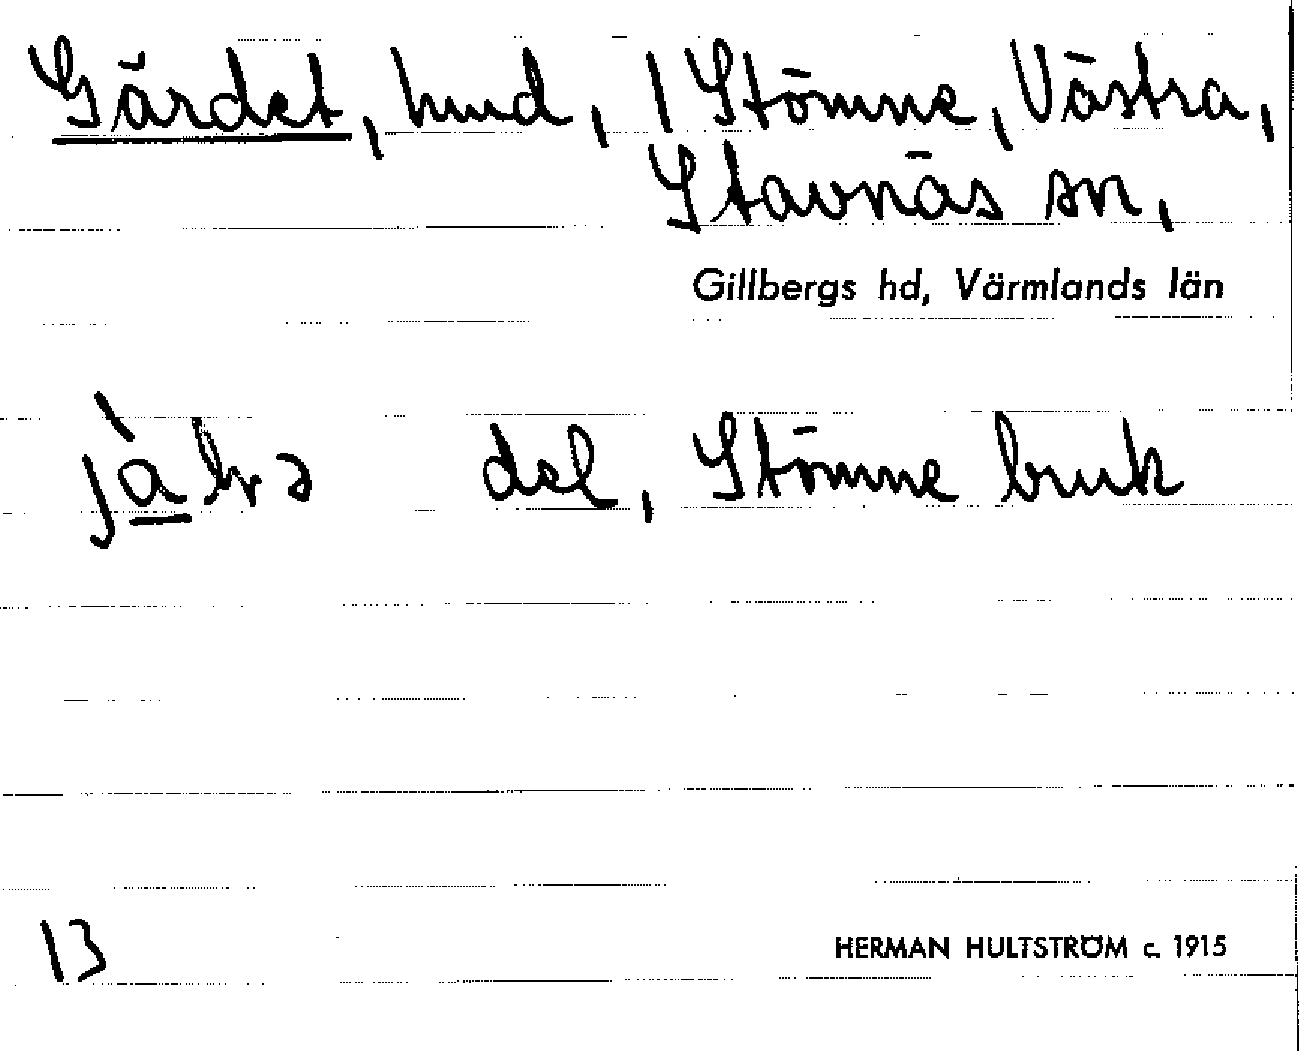 Gärdet, hmd, 1 Stömne, Västra,
Stavnäs sn,
Gillbergs hd, Värmlands län
del, Stömne bruk
13 HERMAN HULTSTRÖM c. 1915